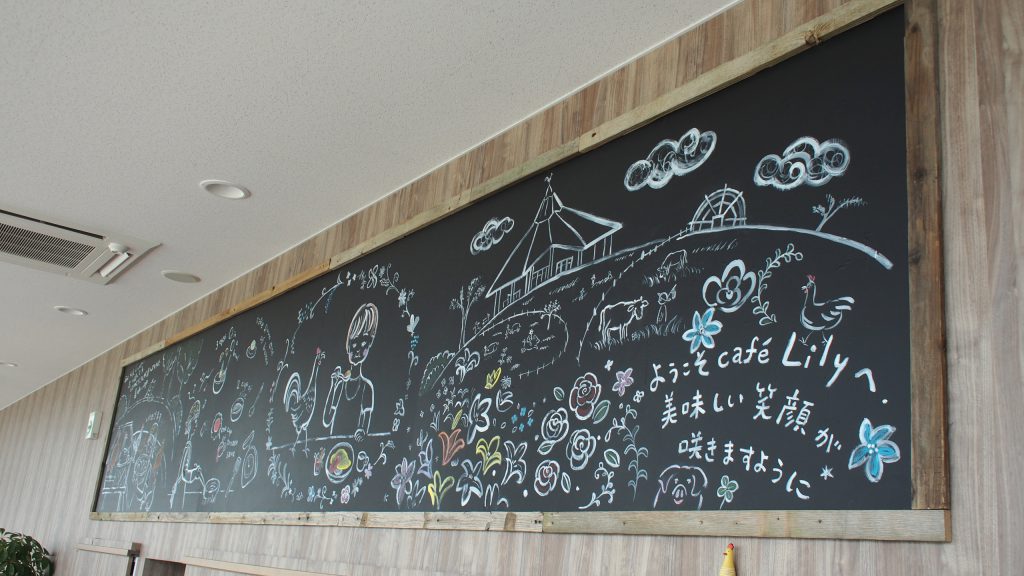 ようこそ café Lilyへ.
美味しい笑顔が
咲きますように